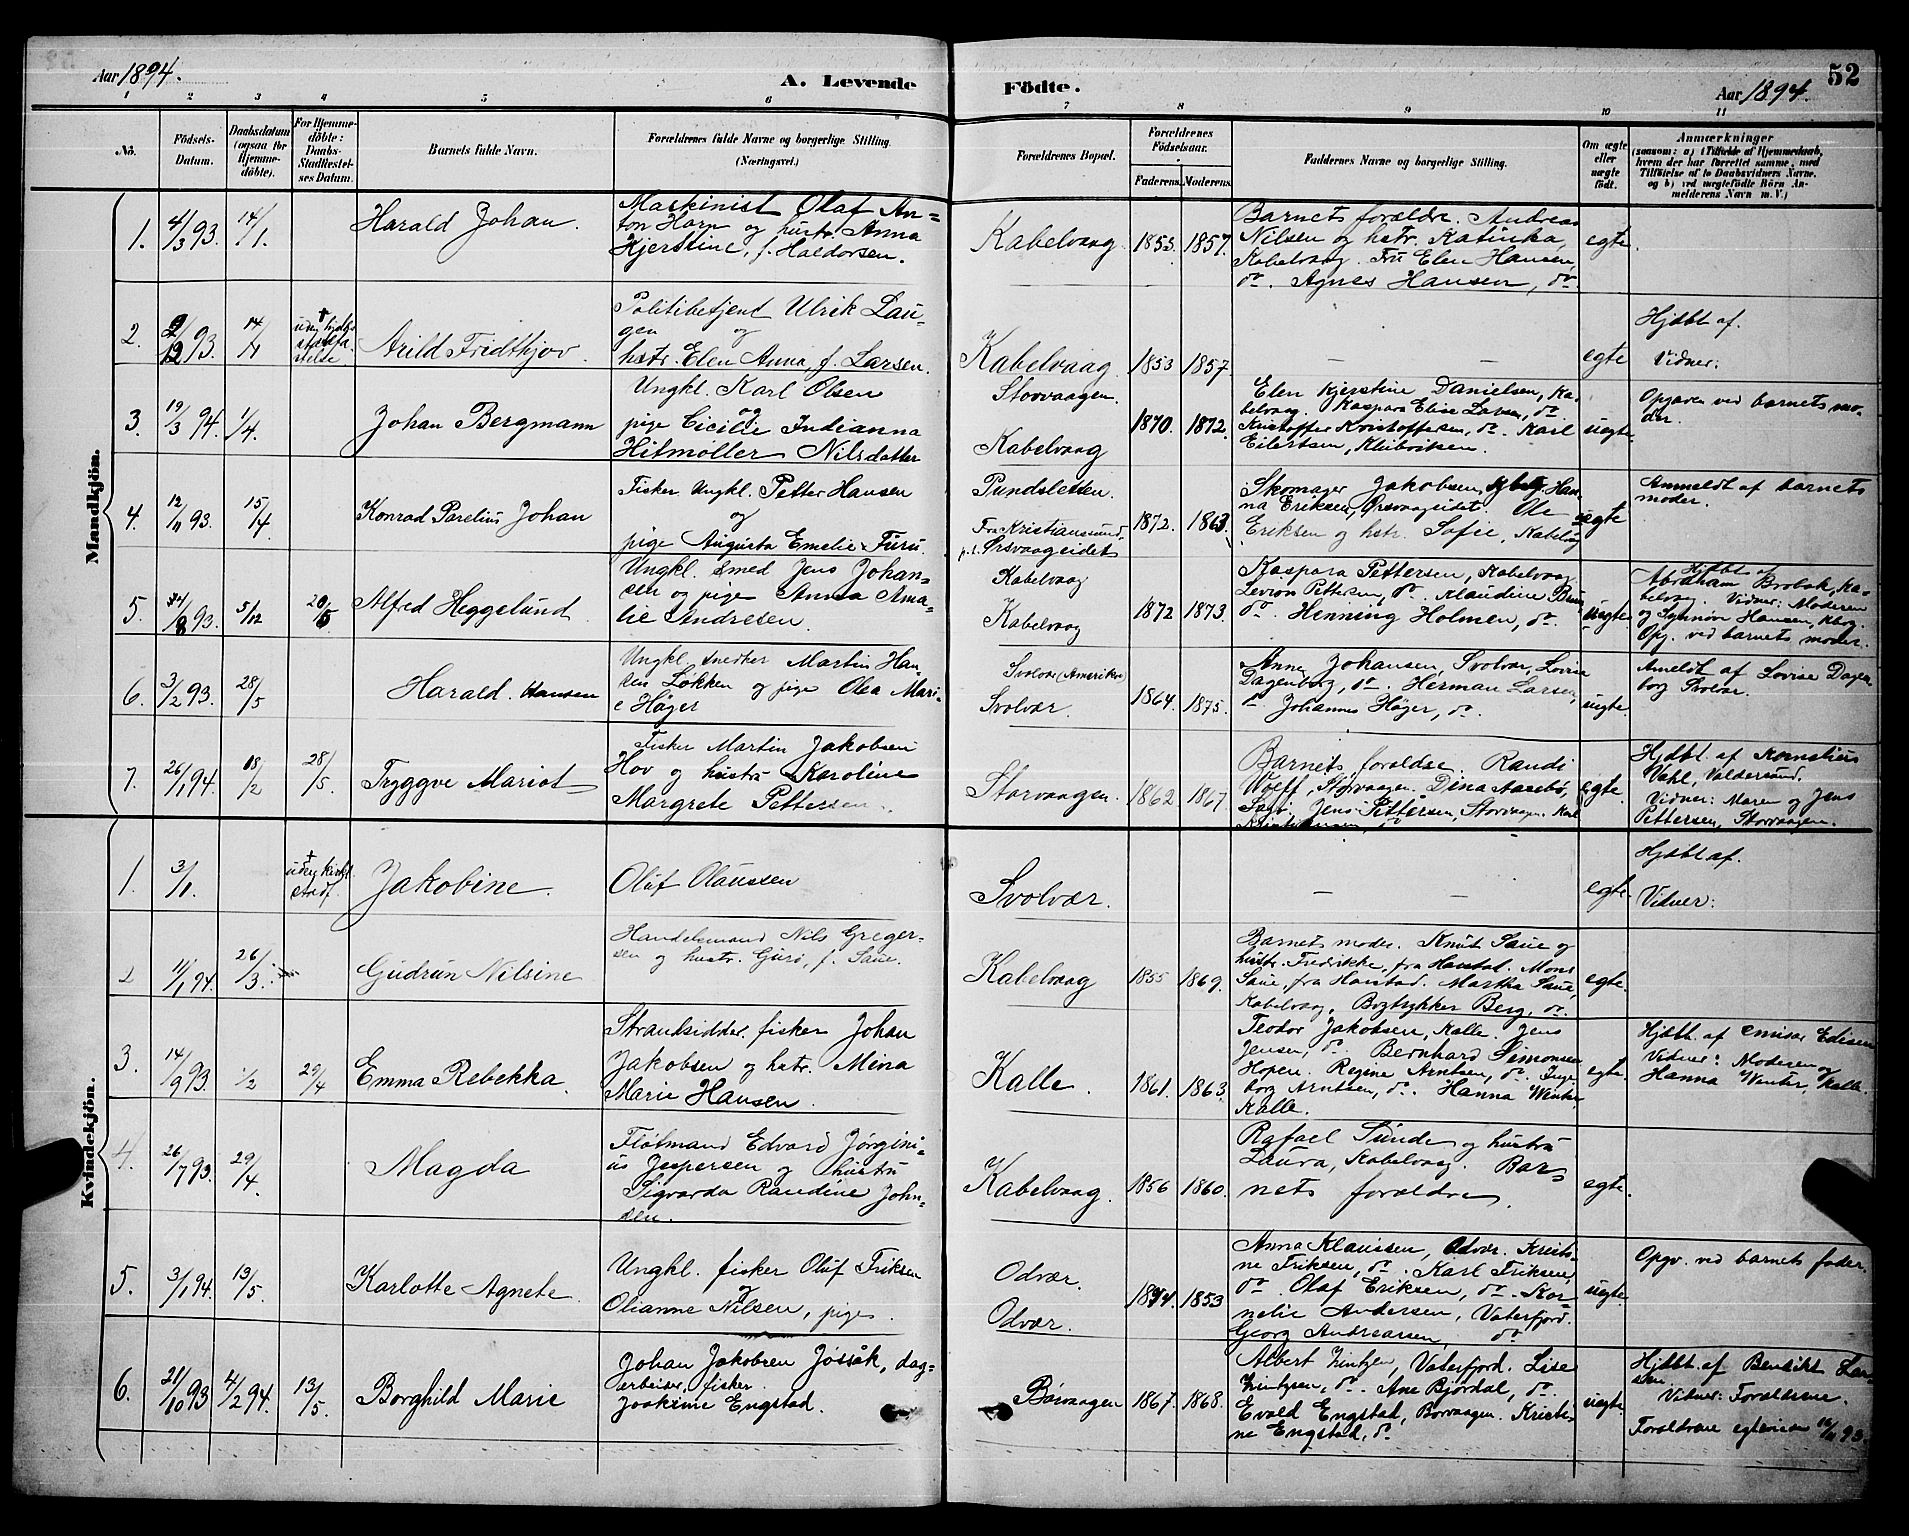 Aar 1894.
A. Levende
Födte.
Aar 1894.
52
1 2 3 4 5 6 7 8 9 10 11
No.
Födsels-
Datum.
Daabsdatum
(ogsaa for
Hjemme-
döbte).
For Hjemme-
döbte:
Daabs-
Stadfæstel-
ses Datum.
Barnets fulde Navn.
Forældrenes fulde Navne og borgerlige Stilling.
(Næringsvei.)
Forældrenes Bopæl.
Forældrenes
Födselsaar.
Faderens. Moderens.
Faddernes Navne og borgerlige Stilling.
Om ægte
eller
uægte
födt.
Anmærkninger
(saasom: a) i Tilfælde af Hjemmedaab,
hvem der har forrettet samme, med
Tilföielse af to Daabsvidners Navne,
og b) ved uægtefödte Börn An-
melderens Navn m. V.)
Mandkjön.
1. 4/3 93. 14/1. Harald Johan.
Maskinist Olaf An-
ton Harp og hustr. Anna
Kjerstine, f. Haldorsen.
Kabelvaag. 1853. 1857.
Barnets forældre. Andreas
Nilsen og hstr. Katinka,
Kabelvaag. Fru Elen Hansen,
do. Agnes Hansen, do
egte.
2. 93. Arild Fridthjov.
Politibetjent Ulrik Lau-
gen og
hstr. Elen Anna, f. Larsen.
Kabelvaag. 1853 1857.
– –
egte
Hjdbt af.
Vidner:
3. 19/3 94. 1/4. Johan Bergmann
Ungkl. Karl Olsen
og
pige Cicilie Indianna
Hitmöller Nilsdatter
Storvaagen.
Kabelvaag
1870. 1872.
Elen Kjerstine Danielsen, Ka-
belvaag. Kaspara Elise Larsen, do.
Kristoffer Kristoffersen, do. Karl
Eilertsen,
uegte.
Opgaven ved barnets mo-
der.
4. 12/11 93. 15/4. Konrad Parelius Johan
Fisker Ungkl. Petter Hansen
og
pige Augusta Emelie Furu.
Pundsletten.
Fra Kristianssund,
p.t. Örsvaageidet
1872. 1863.
Skomager Jakobsen, Han-
na Eriksen, Örsvaageidet. Ole
Eriksen og hstr. Sofie, Kabelvåg
uegte
Anmeldt af barnets
moder.
5. 93. 5/12 20/5 Alfred Heggelund
Ungkl. smed Jens Johan-
sen og pige Anna Ama-
lie Andresen.
Kabelvaag
Kabelvaag
1872 1873.
Kaspara Pettersen, Kabelvaag
Pettersen, do. Klaudine
do. Henning Holmen, do.
uegte.
Hjdbt af
Abraham Ka-
belvaag. Vidner: Moderen
og Synnöve Hansen, Kbvg.
Opg. ved barnets moder.
6. 3/2 93. 28/5 Harald. Hansen
Ungkl. snedker Martin Han-
sen Løkken og pige Olea Mari-
e Höger
Svolvær (Amerika)
Svolvær.
1864. 1875.
Anne Johansen, Svolvær, Lovise
Dagenborg, do. Herman Larsen,
do. Johannes Höger, do.
uegte.
Ameldt af Lovise Dagen-
borg Svolvær.
7. 26/1 94. 18/2 28/5. Tryggve Mariot
Fisker Martin Jakobsen
Hov og hustru Karoline
Margrete Pettersen.
Storvaagen. 1862 1867.
Barnets foraldre. Randi
Wolff, Storvaagen. Dina Aasebö,
Jens Pettersen, Storvaagen. Karl
Kristiansen, do
egte.
Hjdbt. af Kornelius
Vahl, Valdersund.
Vidner: Maren og Jens
Pettersen, Storvaagen.
Kvindekjön.
1. 3/1. Jakobine.
Oluf Olaussen
Svolvær.
– –
egte.
Hjdbt af.
Vidner:
2 11/1 94. 26/3. Gudrun Nilsine
Handelsmand Nils Greger-
sen og hustr. Guro, f. Saue.
Kabelvaag 1855 1869.
Barnets moder. Knut Saue og
hustr. Fredrikke, fra Harstad. Mons
Saue, fra Harstad. Martha Saue,
Kabelvaag, Bogtrykker Berg, do.
egte.
3. 14/9 93 1/2 29/4 Emma Rebekka.
Strandsidder, fisker Johan
Jakobsen og hstr. Mina
Marie Hansen.
Kalle. 1861. 1863.
Teodor Jakobsen, Kalle. Jens
Jensen, do. Bernhard Simonsen
Hopen. Regine Arntsen, do. Inge-
borg Arntsen, do. Hanna Winter,
Kalle.
egte.
Hjdbt. af Emisær Edisen
Vidner: Moderen og
Hanna Winter, Kalle.
4. 26/7 93. 29/4. Magda
Fløtmand Edvard Jørgini-
us Jespersen og hustru
Sigvarda Randine John-
sen.
Kabelvaag. 1856 1860.
Rafael Sunde og hustru
Laura, Kabelvaag. Bar-
nets forældre.
egte.
5. 3/1 94. 13/5. Karlotte Agnete.
Ungkl. fisker Oluf Eriksen
og
Olianne Nilsen, pige.
Odvær.
Odvær.
1853
Anna Klaussen, Odvær. Kristi-
ne Eriksen, do. Karl Eriksen,
do. Olaf Eriksen, do. Kor-
nelie Andersen, Vaterfjord.
Georg Andreassen, do
uegte.
Opgv. ved barnets fader.
6. 21/10 93 4/2 94. 13/5. Borghild Marie
Johan Jakobsen Jössåk, dag-
arbeider, fisker
Joakime Engstad.
Börvaagen 1867. 1868.
Albert Zintzen, Vaterfjord. Lise
Zintzen, do. Ane Bjordal, do.
Evald Engstad, Borvaagen. Kristi-
ne Engstad, do.
uegte.
Hjdbt. af Bendikt Lar-
sen.
Vidner: Foraldrene.
Foraldrene egteviede 16/11 93.